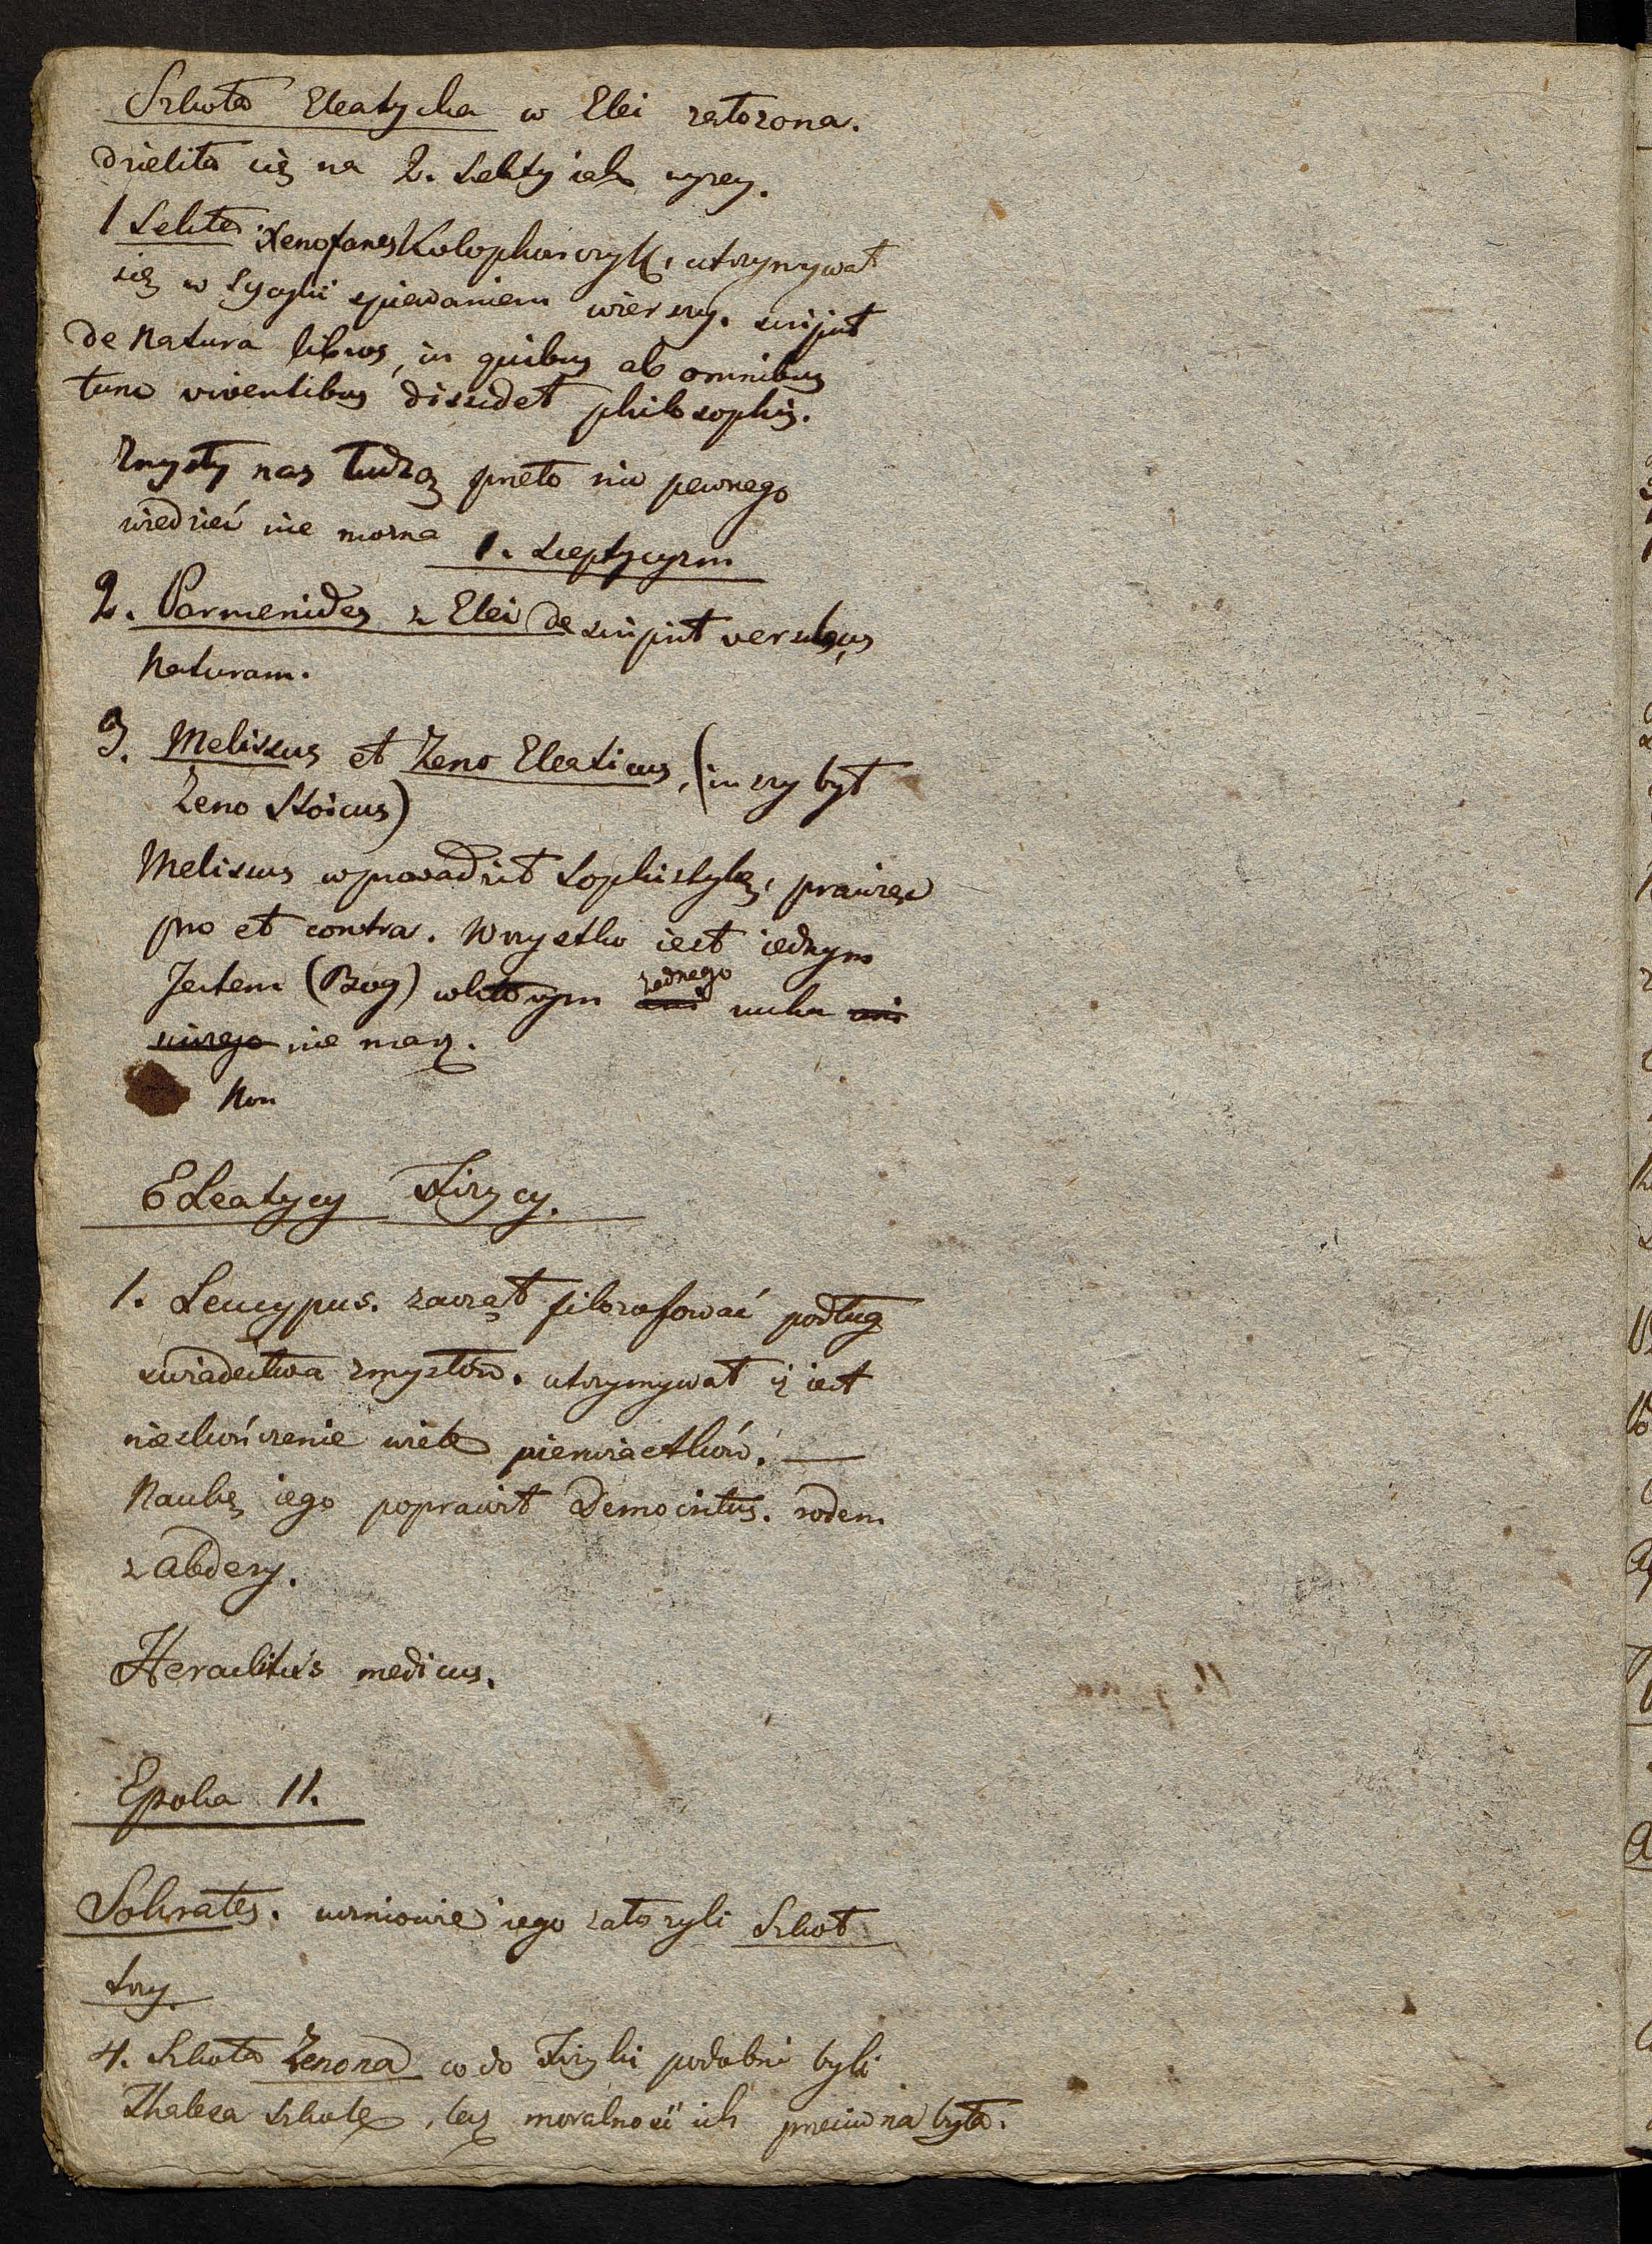 Szkoła Eleatycka w Elei założona.
dzieliła się na 2. Sekty iak wyżey.
1 Sekta Xenofanes Kolophończyk, utrzymywał
się w Sycylii spiewaniem wierszy. scripsit
de Natura libros, in quibus ab omnibus
tunc viventibus dissidet philosophis.
Zmysły nas łudzą przeto nic pewnego
wiedzieć nie można 1. Sceptycyzm
2. Parmenides z Elei descripsit versibus
Naturam.
3. Melissus et Zeno Eleaticus, (inszy był
Zeno Stoicus)
Melissus wprowadził Sophistykę, prawiąc
pro et contra. Wszystko iest iednym
Jestem (Bóg) w którym żadnego ruchu
nie masz.
Non
Eleatycy Fizycy.
1. Leucypus. zaczął filozofować podług
świadectwa zmysłów. utrzymywał iż iest
nieskończenie wiele pierwiastków. —
Naukę iego poprawił Democritus. rodem
z Abdery.
Heraclitus medicus.
Epoka II.
Sokrates. uczniowie iego założyli Szkół
trzy.
4. Szkoła Zenona co do Fizyki podobni byli
Thalesa szkole, lecz moralność ich przeciwna była.